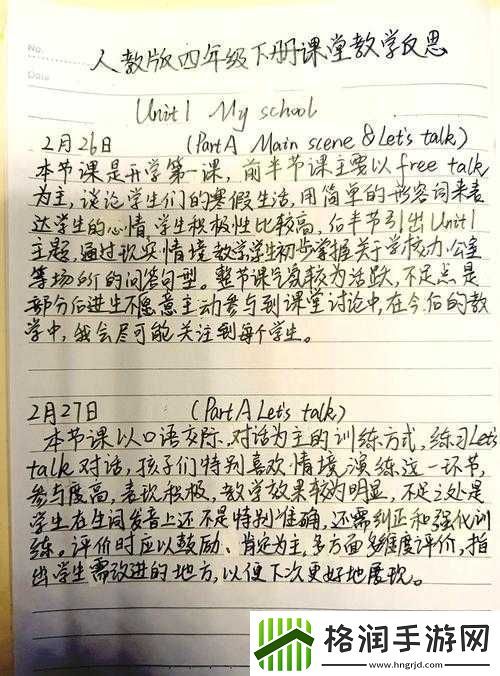 No.
Date
人教版四年级下册课堂教学反思
Unit1 My school
2月26日 (PartA Main scene & Let's talk)
本节课是开学第一课，前半节课主要以free talk
为主，谈论学生们的寒假生活，用简单的形容词来表
达学生的心情，学生积极性比较高，后半节引出Unit1
主题，通过现实情境教学学生初步掌握关于学校办公室
等场所的问答句型。整节课气氛较为活跃，不足点是
部分后进生不愿意主动参与到课堂讨论中，在今后的教
学中，我会尽可能关注到每个学生。
2月27日 (PartA Let's talk)
本节课以口语交际，对话为主的训练方式，练习Let's
talk对话，孩子们特别喜欢情境演练这一环节，
参与度高，表现积极，教学效果较为明显，不足之处是
学生在生词发音上还不是特别准确，还需纠正和强化训
练。评价时应以鼓励、肯定为主，多方面多维度评价，指
出学生需改进的地方，以便下次更好地展现。
格润手游网
www.hngrjd.com